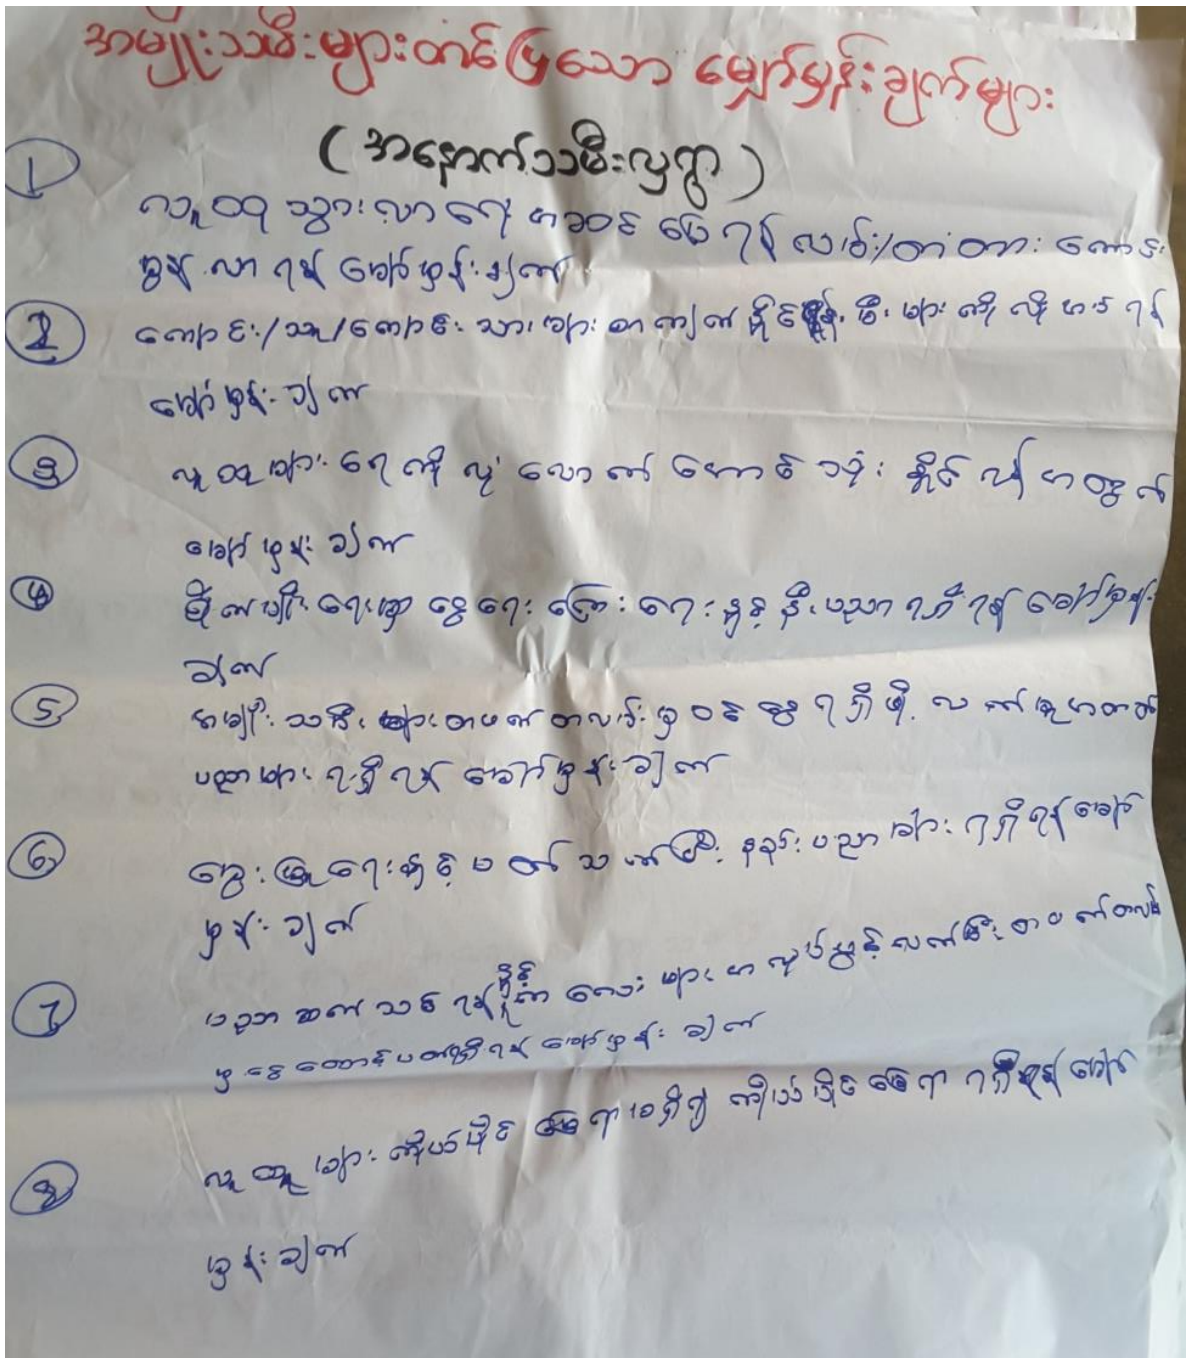 အမျိုးသမီးများတင်ပြသော မျှော်မှန်းချက်များ
(အနောက်သမီးလှရွာ)
1
လူထု သွားလာရေး အဆင်ပြေရန် လမ်း/တံတား ကောင်း
မွန် လာ ရန် မျှော်မှန်းချက်
2
ကျောင်း/သူ/ကျောင်း သား များ စာကျက်နိုင် မီး များ ကို လို အပ် ရန်
မျှော်မှန်း ချက်
3
လူ ထု များ ရေ ကို လုံ လောက် အောင် သုံး နိုင် ရန် အတွက်
မျှော်မှန်း ချက်
4
စိုက်ပျိုး ရေးမှာ ငွေရေး ကြေး ရေး နှင့် နည်းပညာ ရရှိ ရန် မျှော်မှန်း
ချက်
5
အမျိုး သမီး များ တဖက် တလမ်း မှ ဝင် ငွေ ရရှိ ဖို့ လက်မှုအတတ်
ပညာများ ရရှိ ရန် မျှော်မှန်း ချက်
6
မွေး မြူ ရေး နှင့် ပတ် သက်ပြီး နည်း ပညာ များ ရရှိ ရန် မျှော်
မှန်း ချက်
7
ပညာ ဆက် သင် ရန် နှင့် လေး များ အလုပ်နှင့် လက်မီး တဖက်တလမ်း
မှ ငွေ ထောက်ပံ့ ရန် မျှော်မှန်း ချက်
8
လူ ထု များ ကိုယ်ပိုင် မြေ ရာ မရှိ၍ ကိုယ်ပိုင် မြေရာ ရရှိရန် မျှော်
မှန်း ချက်